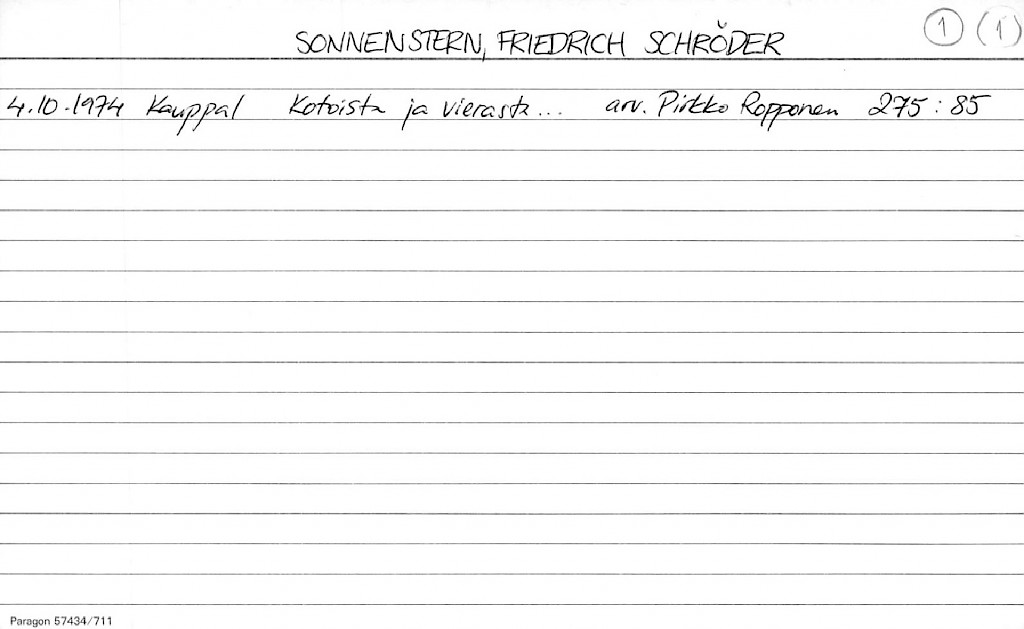 SONNENSTERN, FRIEDRICH SCHRÖDER 1 (1)
4.10.1974 Kauppal Kotoista ja vierasta... arv. Pirkko Ropponen 275:85
Paragon 57434/711